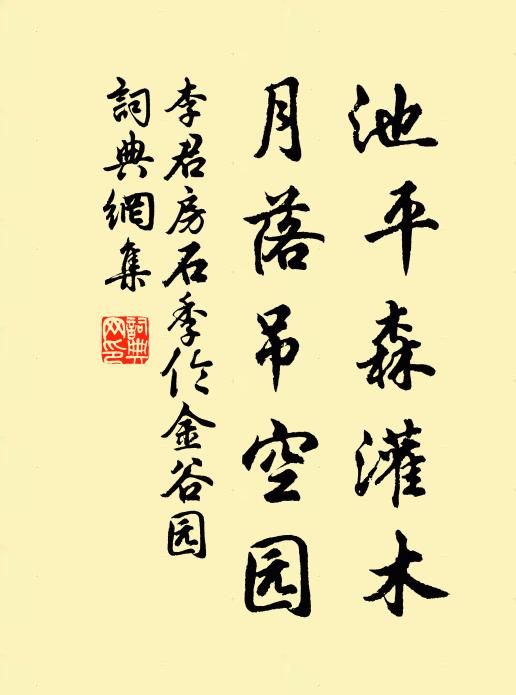 池平森灌木
月落吊空园
李君房石季伦金谷园
詞典網集
詞典網印